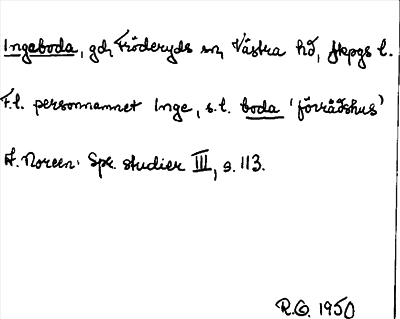 Ingeboda, gd, Fröderyds sn, Västra hd, Jkpgs l.
F.l. personnamnet Inge, s.l. boda 'förrådshus'
A. Noreen: Spr. studier III, s. 113.
R.O. 1950